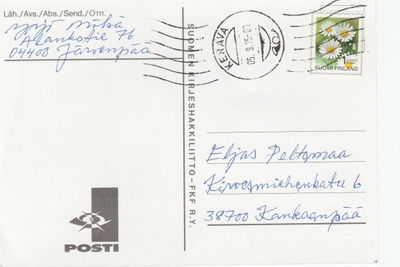 Läh./Avs./Abs./Send./Отп.
Yrjö Mäkä
Alankotie 76
04400 Järvenpää
SUOMEN KIRJESHAKKILIITTO-FKF R.Y.
KERAVA
05.9.95-00
1
SUOMI FINLAND
Eljas Peltomaa
Kirvesmiehenkatu 6
38700 Kankaanpää
POSTI